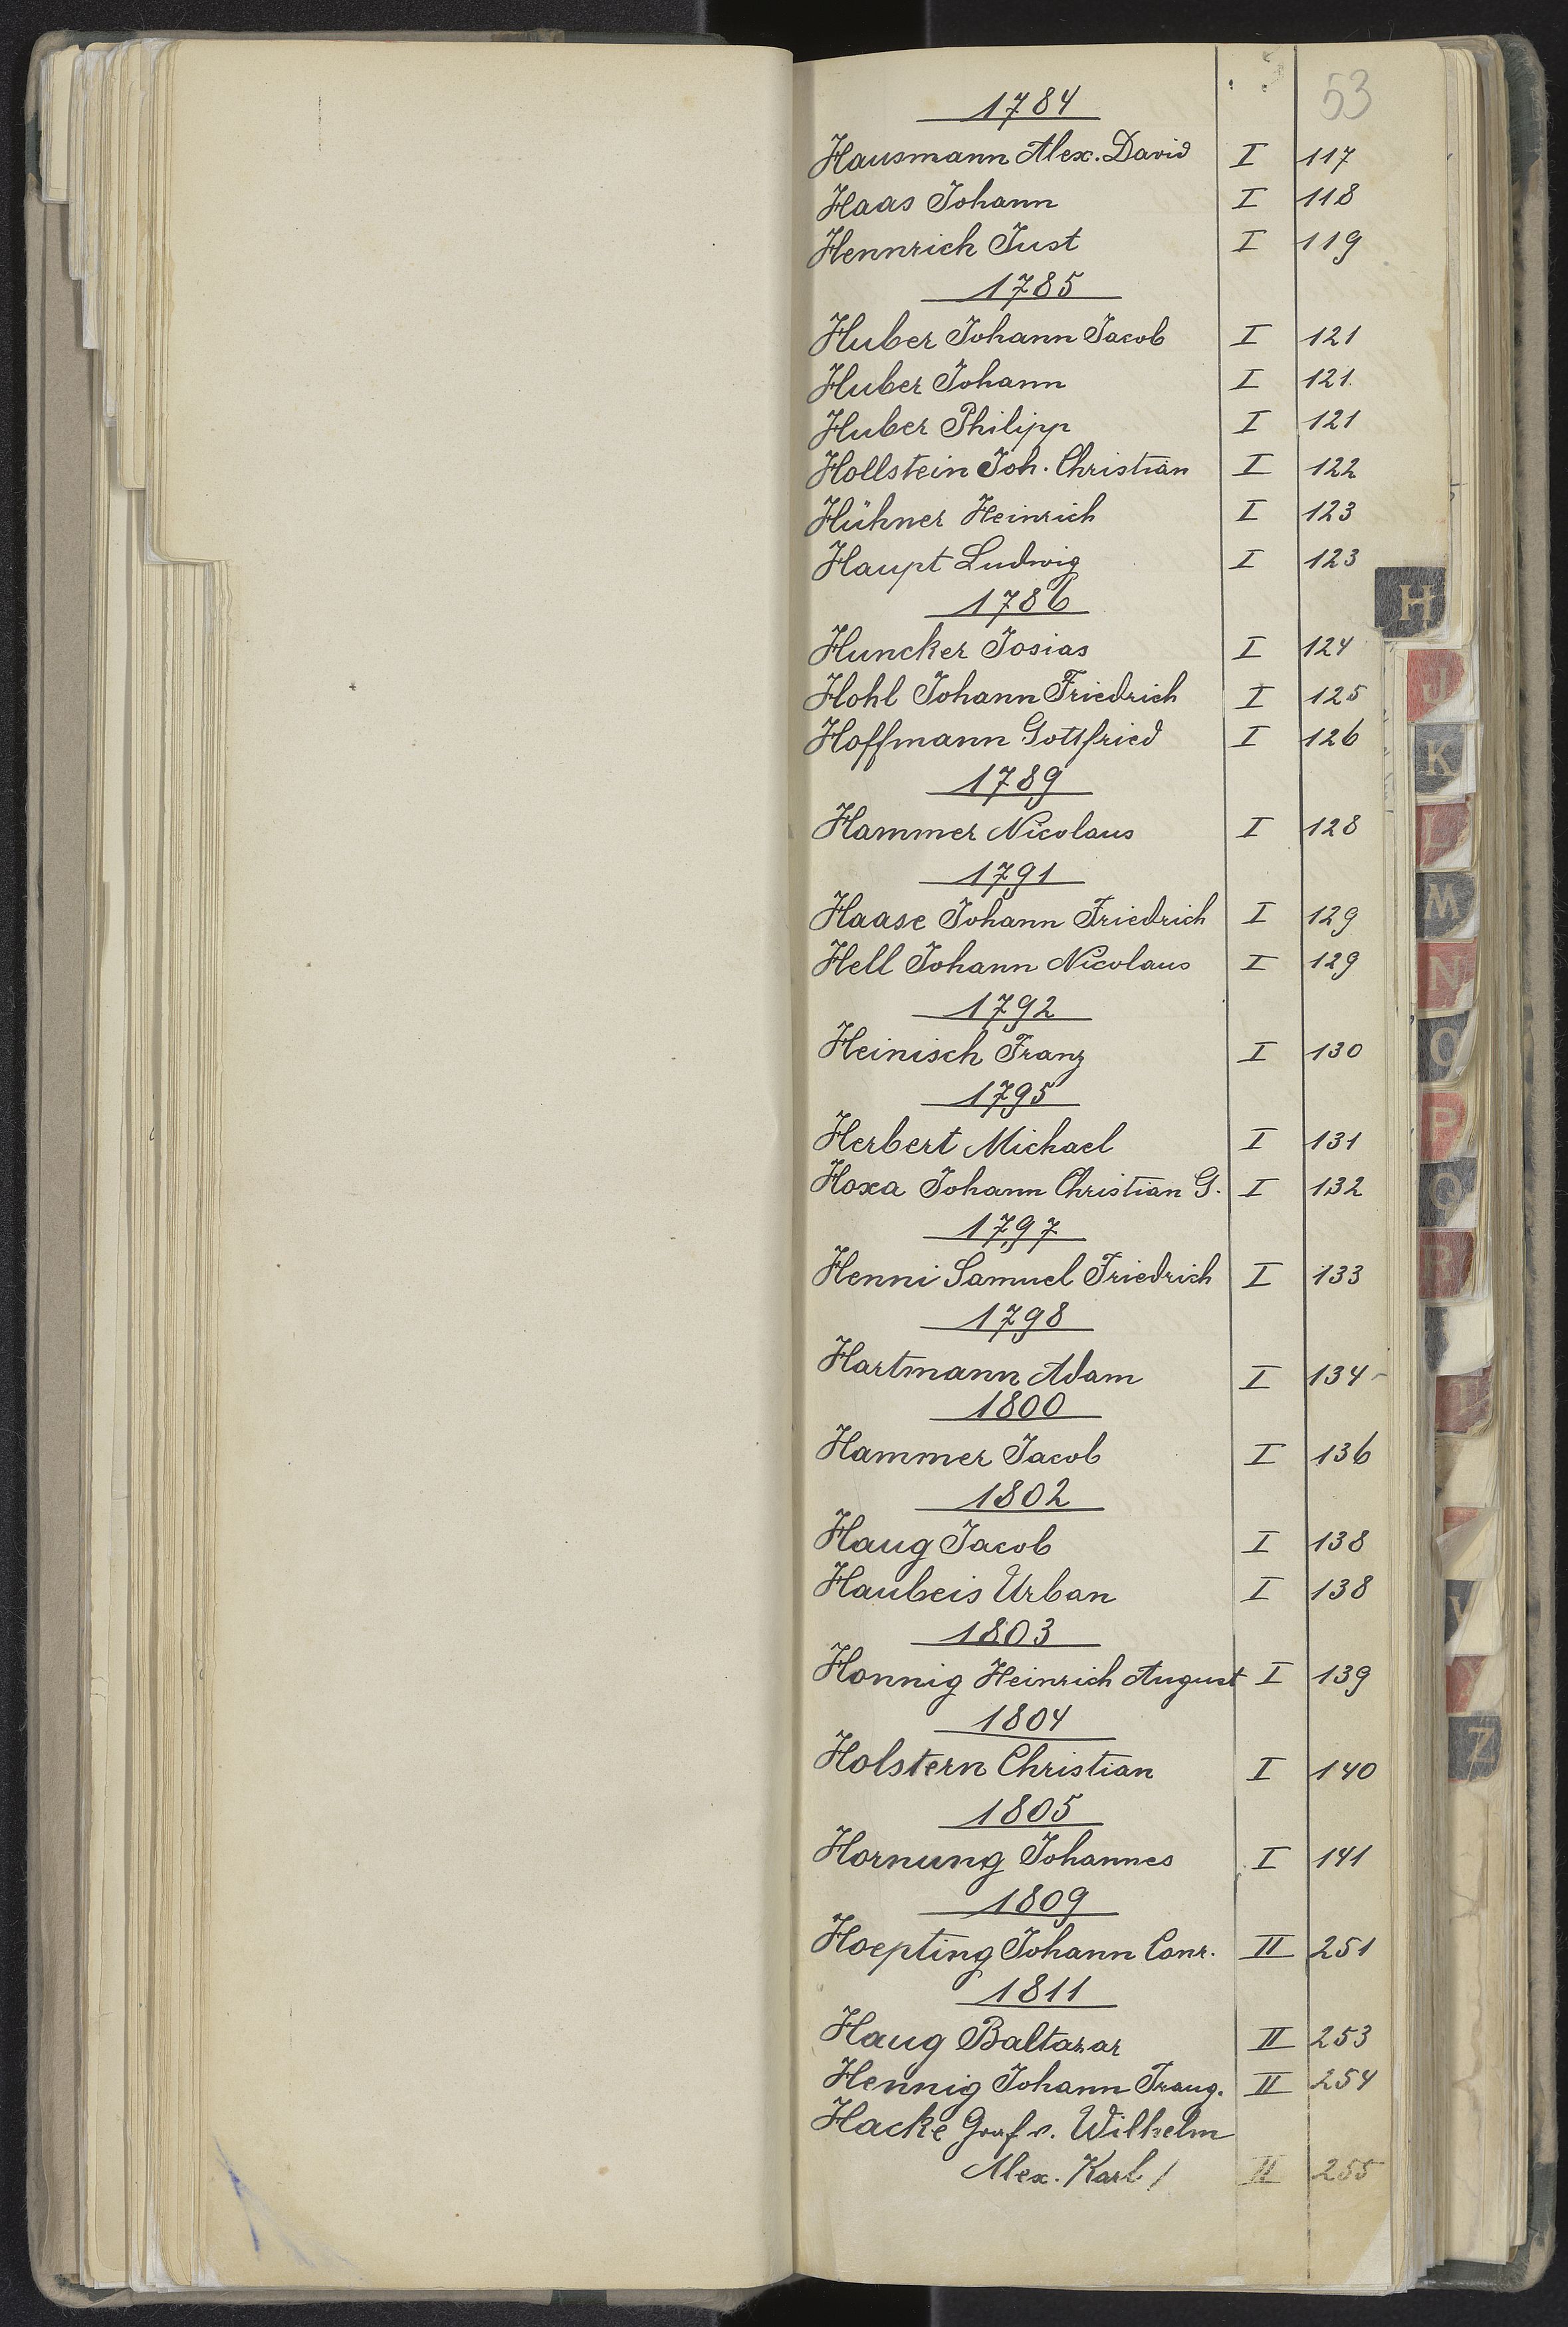 53
1784
Hausmann Alex. David I 117
Haas Johann I 118
Hennrich Just I 119
1785
Huber Johann Jacob I 121
Huber Johann I 121.
Huber Philipp I 121
Hollstein Joh. Christian I 122
Hühner Heinrich I 123
Haupt Ludwig I 123
1786
Huncker Josias I 124
Hohl Johann Friedrich I 125
Hoffmann Gottfried I 126
1789
Hammer Nicolaus I 128
1791
Haase Johann Friedrich I 129
Hell Johann Nicolaus I 129
1792
Heinisch Franz I 130
1795
Herbert Michael I 131
Hoxa Johann Christian G. I 132
1797
Henni Samuel Friedrich I 133
1798
Hartmann Adam I 134
1800
Hammer Jacob I 136
1802
Haug Jacob I 138
Haubeis Urban I 138
1803
Honnig Heinrich August I 139
1804
Holstern Christian I 140
1805
Hornung Johannes I 141
1809
Hoepting Johann Conr. II 251
1811
Haug Baltasar II 253
Hennig Johann Traug. II 254
Hacke Graf v. Wilhelm
Alex. Karl / II 255
H
J
K
L
M
N
O
P
Q
R
Z